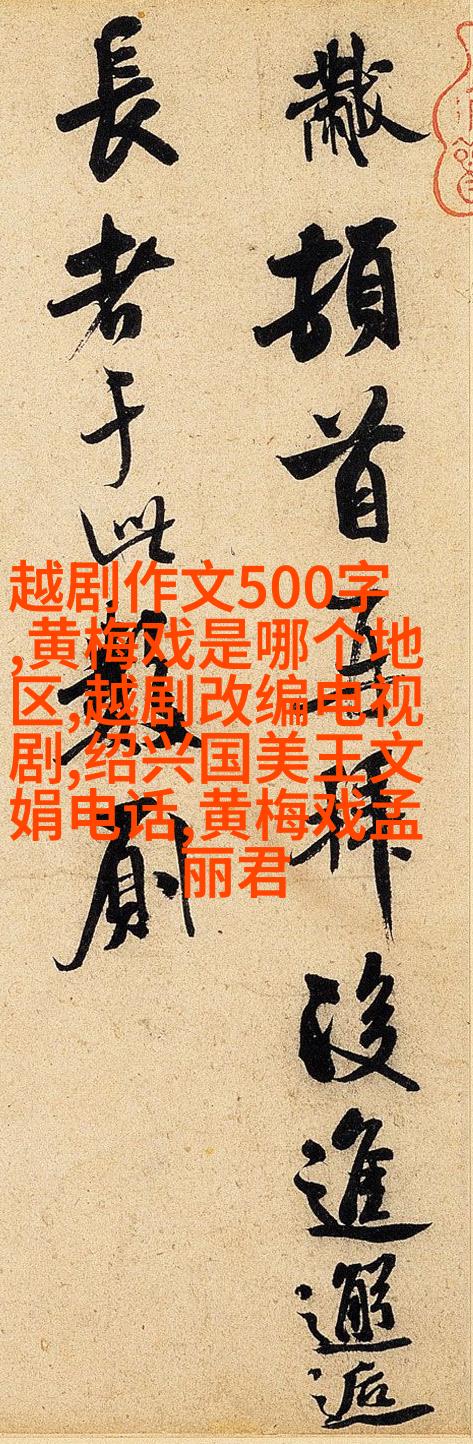 黻頓首再拜後進邂逅
長者于此數廁
越剧作文500字
,黄梅戏是哪个地
区,越剧改编电视
剧,绍兴国美王文
娟电话,黄梅戏孟
丽君